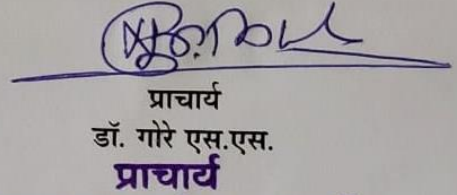 प्राचार्य
डॉ. गोरे एस.एस.
प्राचार्य